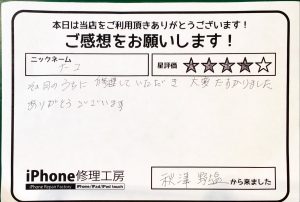 本日は当店をご利用頂きありがとうございます！
ご感想をお願いします！
ニックネーム
ナーコ
星評価
★★★★☆
その日のうちに 修理していただき 大変たすかりました
ありがとうございます
iPhone修理工房
iPhone Repair Factory
iPhone/iPad/iPod touch
秋津 野塩 から来ました